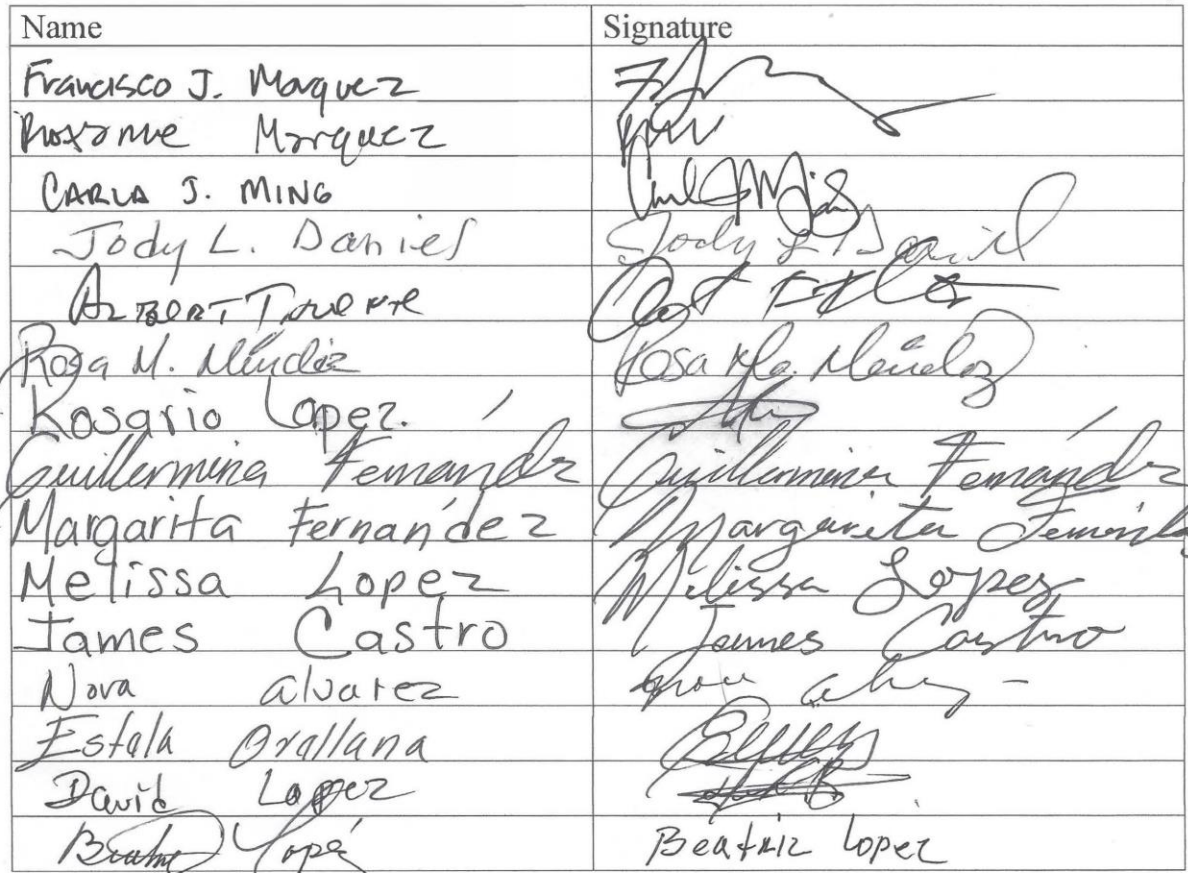 Name Signature
Francisco J. Marquez
Roxanne Marquez
CARLA J. MING
Jody L. Daniel Jody L Daniel
ALBERT
Rosa M. Mendez Rosa Ma. Mendez
Rosario Lopez.
Guillermina Fernández Guillermina Fernández
Margarita Fernandez Margarita Fernandez
Melissa Lopez Melissa Lopez
James Castro James Castro
Nova alvarez
Estala Orallana
David Lopez
Lopez Beatriz Lopez